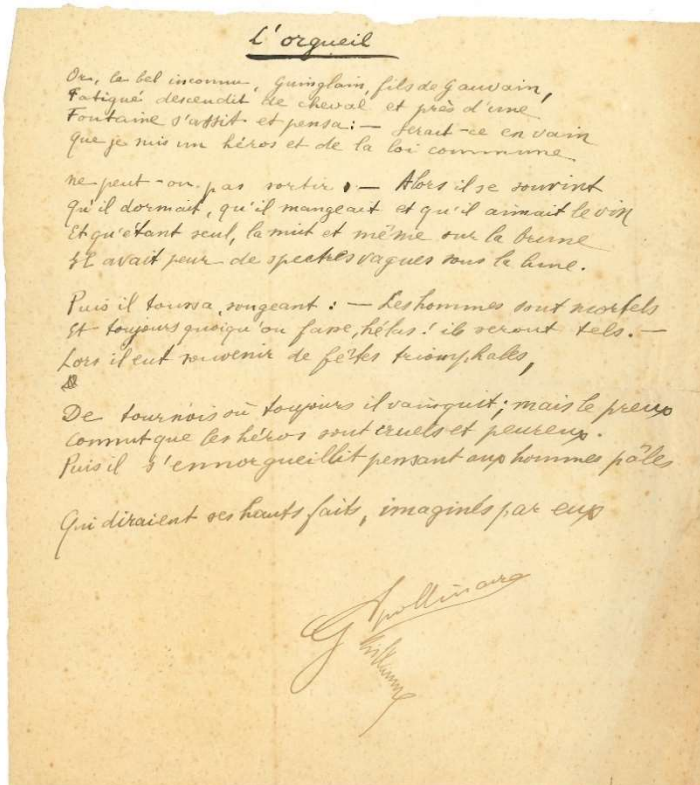 L'orgueil
Or, le bel inconnu, Guinglain, fils de Gauvain,
Fatigué descendit de cheval et près d'une
Fontaine s'assit et pensa : — Serait-ce en vain
Que je suis un héros et de la loi commune
ne peut-on pas sortir. — Alors il se souvint
Qu'il dormait, qu'il mangeait et qu'il aimait le vin
Et qu'étant seul, la nuit et même sur la brune
Il avait peur de spectres vagues sous la lune.
Puis il toussa, songeant : — Les hommes sont mortels
Et toujours quoiqu'on fasse, hélas ! ils seront tels. —
Lors il eut souvenir de fêtes triomphales,
De tournois où toujours il vainquit ; mais le preux
Connut que les héros sont cruels et peureux.
Puis il s'ennorgueillit pensant aux hommes pâles
Qui diraient ses hauts faits, imaginés par eux
G Apollinaire
Guillaume